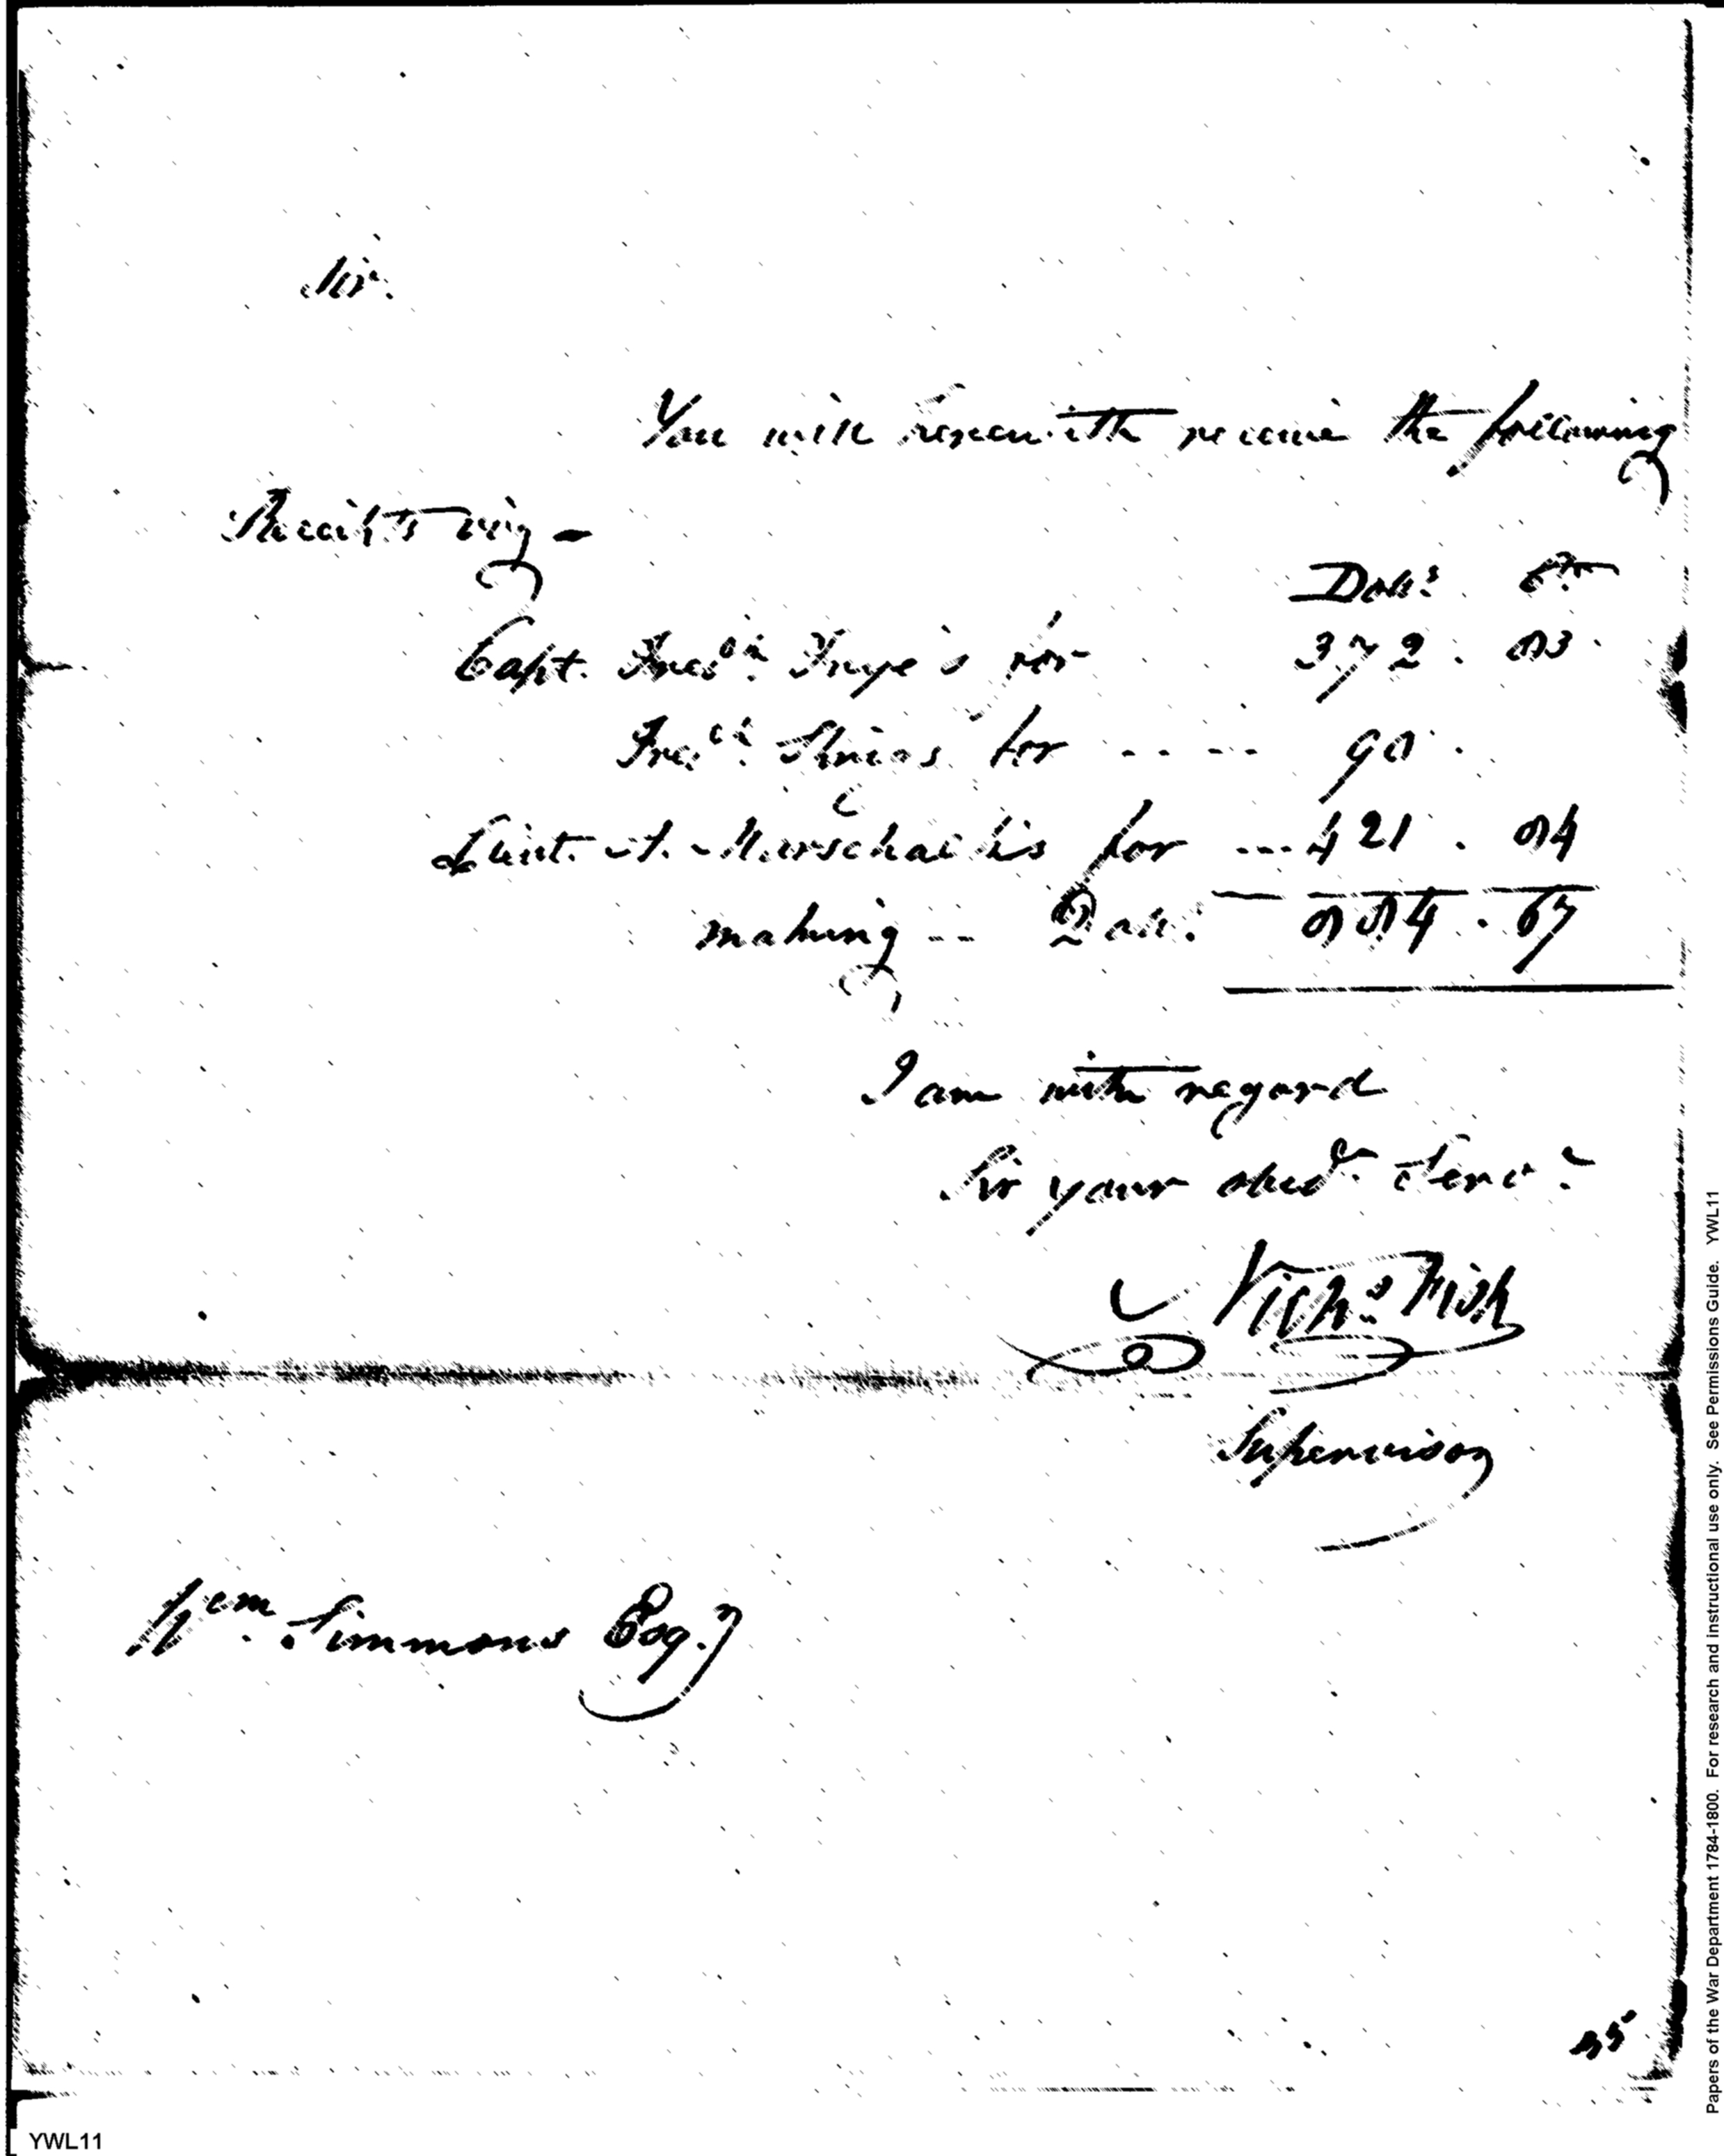 Sir.
You will herewith receive the following
Receipts viz -
Dolls. Cts
Capt. Fredck. Frye's for 372 . 83
Fredck. for - - - - 90 .
Lieut. A. Marschalk's for --- 421 . 84
making -- Dolls. 884 . 67
I am with regard
Sir your obedt. Servt.
Nichs. Fish
Supervisor
Wm. Simmons Esq.
35
YWL11
Papers of the War Department 1784-1800. For research and instructional use only. See Permissions Guide. YWL11